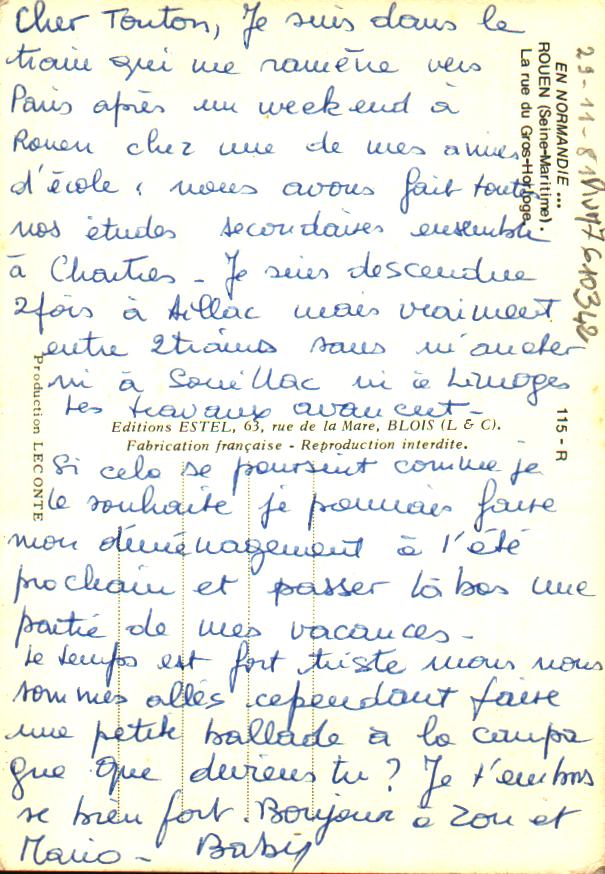 Cher Tonton, Je suis dans le
train qui me ramène vers
Paris après un weekend à
Rouen chez une de mes amies
d'école ; nous avons fait toutes
nos études secondaires ensemble
à Chartres - Je suis descendue
2 fois à Aillac mais vraiment
entre 2 trains sans m'arrêter
ni à Souillac ni à Limoges
Les travaux avancent -
Si cela se poursuit comme je
le souhaite je pourrais faire
mon déménagement à l'été
prochain et passer là bas une
partie de mes vacances -
Le temps est fort triste mais nous
sommes allés cependant faire
une petite ballade à la campa
gne Que deviens tu ? Je t'embras
se bien fort. Bonjour à Zou et
Mario - Baby
EN NORMANDIE ...
ROUEN (Seine-Maritime).
La rue du Gros-Horloge.
29-11-81
115 - R
Editions ESTEL, 63, rue de la Mare, BLOIS (L & C).
Fabrication française - Reproduction interdite.
Production LECONTE